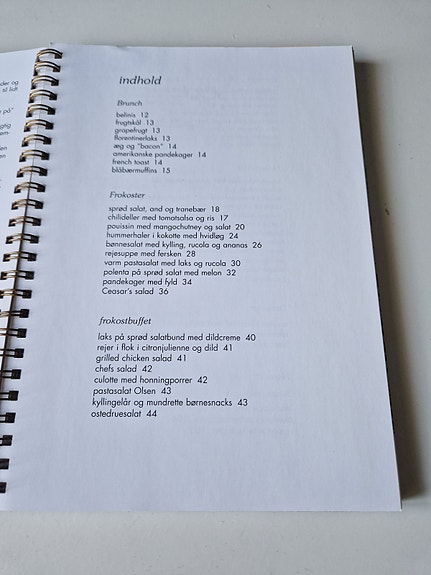 der og
til lidt
på"
gtig
em-
en
en
indhold
Brunch
belinis 12
frugtskål 13
grapefrugt 13
florentinerlaks 13
æg og "bacon" 14
amerikanske pandekager 14
french toast 14
blåbærmuffins 15
Frokoster
sprød salat, and og tranebær 18
chilideller med tomatsalsa og ris 17
pouissin med mangochutney og salat 20
hummerhaler i kokotte med hvidløg 24
bønnesalat med kylling, rucola og ananas 26
rejesuppe med fersken 28
varm pastasalat med laks og rucola 30
polenta på sprød salat med melon 32
pandekager med fyld 34
Ceasar's salad 36
frokostbuffet
laks på sprød salatbund med dildcreme 40
rejer i flok i citronjulienne og dild 41
grilled chicken salad 41
chefs salad 42
culotte med honningporrer 42
pastasalat Olsen 43
kyllingelår og mundrette børnesnacks 43
ostedruesalat 44